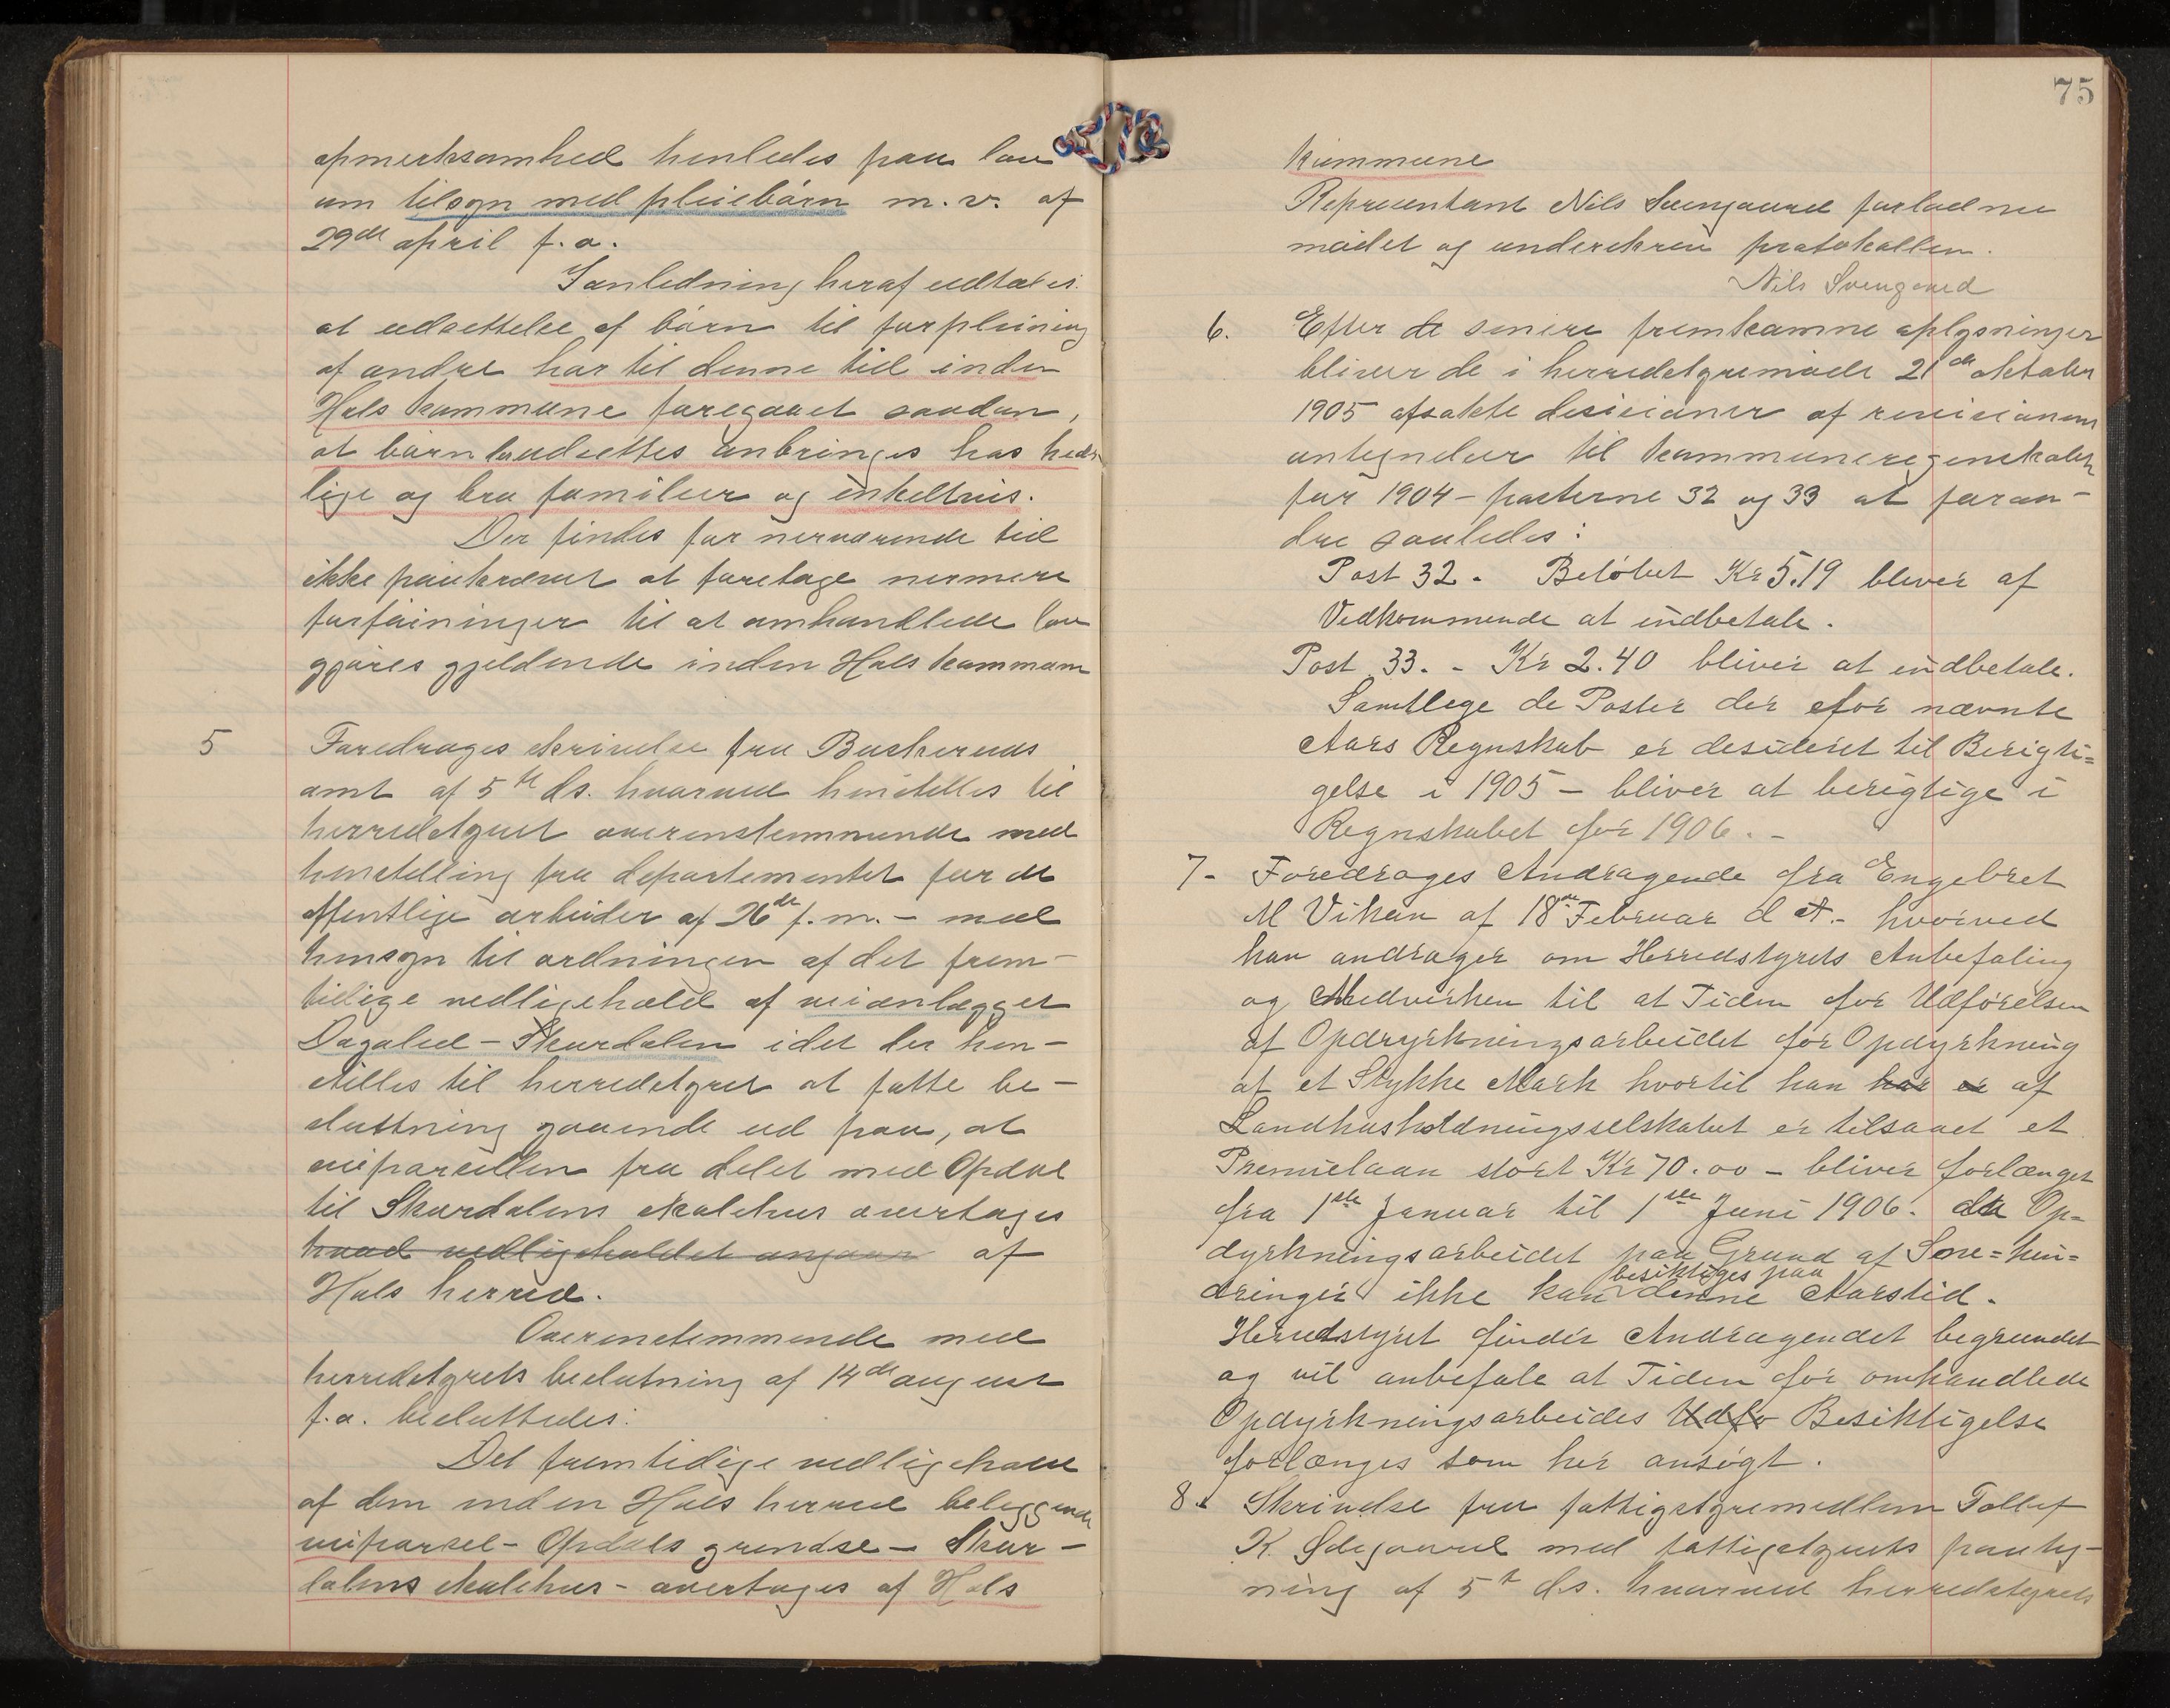 opmerksomhed henledes paa lov
om tilsyn med pleiebørn m.v. af
29de april f.a.
I anledning heraf udtales:
at udsættelse af børn til forpleining
af andre har til denne tid inden
Hols kommune foregaaet saadan,
at børn udsættes anbringes hos hæder
lige og bra familier og enkeltvis.
Der findes for nerværende tid
ikke paakrævet at foretage nermere
forføininger til at omhandlede lov
gjøres gjeldende inden Hols kommune
5 Foredroges skrivelse fra Buskeruds
amt af 5te ds. hvorved henstilles til
herredstyret overenstemmende med
henstilling fra departementet for de
offentlige arbeider af 26de f.m. – med
hensyn til ordningen af det frem-
tidige vedligehold af veianlægget
Dagalied – Skurdalen idet der hen-
stilles til herredstyret at fatte be-
slutning gaaende ud paa, at
veiparcellen fra delet med Opdal
til Skurdalens skolehus overtages
hvad vedligeholdet angaar af
Hols herred.
Overenstemmende med
herredstyrets beslutning af 14de august
f.a. besluttedes:
Det fremtidige vedligehold
af den inden Hols herred beliggende
veiparsel – Opdals grendse – Skur-
dalens skolehus – overtages af Hols
75
kommune
Representant Nils Sveingaard forlod nu
mødet og underskrev protokollen.
Nils Sveingaard
6. Efter de senere fremkomne oplysninger
bliver de i herredstyremøde 21de oktober
1905 afsakte desisioner af revisionens
antegnelser til kommuneregnskabet
for 1904 – posterne 32 og 33 at foran-
dre saaledes:
Post 32. Beløbet Kr 5.19 bliver af
Vedkommende at indbetale.
Post 33. – Kr 2.40 bliver at indbetale.
Samtlege de Poster der for nævnte
Aars Regnskab er desideret til Berigti=
gelse i 1905 – bliver at berigtige i
Regnskabet for 1906. –
7– Foredroges Andragende fra Engebret
M Vikan af 18de Februar d A. – hvorved
han andrager om Herredstyrets Anbefaling
og Medvirken til at Tiden for Udførelsen
af Opdryrkningsarbeidet for Opdyrkning
af et Stykke Mark hvortil han har er af
Landhusholdningsselskabet er tilsaaet et
Premielaan stort Kr 70.00 – bliver forlænget
fra 1ste Januar til 1ste Juni 1906. da Op=
dyrkningsarbeidet paa Grund af Sne=hin=
dringer ikke kan besiktiges paa denne Aarstid.
Herredstyret finder Andragendet begrundet
og vil anbefale at Tiden for omhandlede
Opdyrkningsarbeides Udfø Besiktigelse
forlænges som her ansøgt.
8. Skrivelse fra fattigstyremedlem Tollef
K. Ødegaard med fattigstyrets paateg-
ning af 5te ds. hvorved herredstyrets